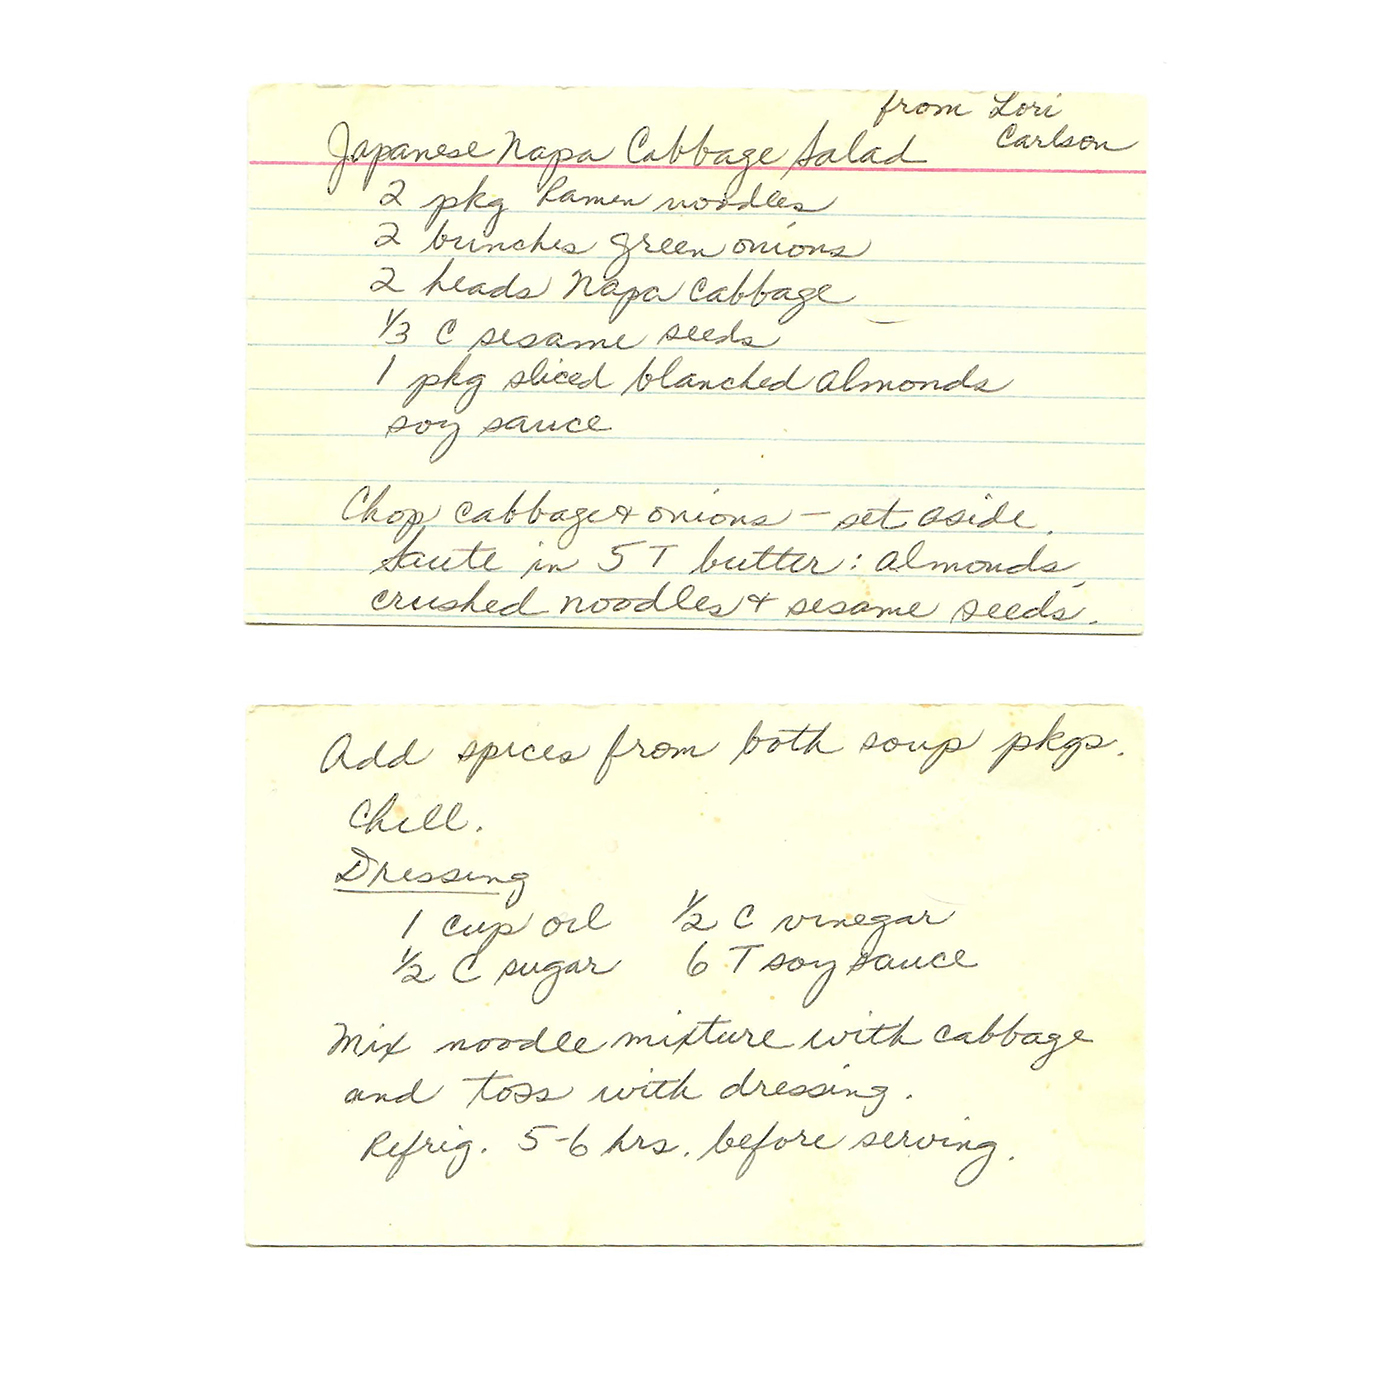 from Lori
Carlson
Japanese Napa Cabbage Salad
2 pkg Ramen noodles
2 bunches green onions
2 heads Napa Cabbage
1/3 C sesame seeds
1 pkg sliced blanched almonds
soy sauce
Chop cabbage & onions – set aside.
Saute in 5 T butter: almonds,
crushed noodles & sesame seeds.
Add spices from both soup pkgs.
Chill.
Dressing
1 cup oil 1/2 C vinegar
1/2 C sugar 6 T soy sauce
Mix noodle mixture with cabbage
and toss with dressing.
Refrig. 5-6 hrs. before serving.